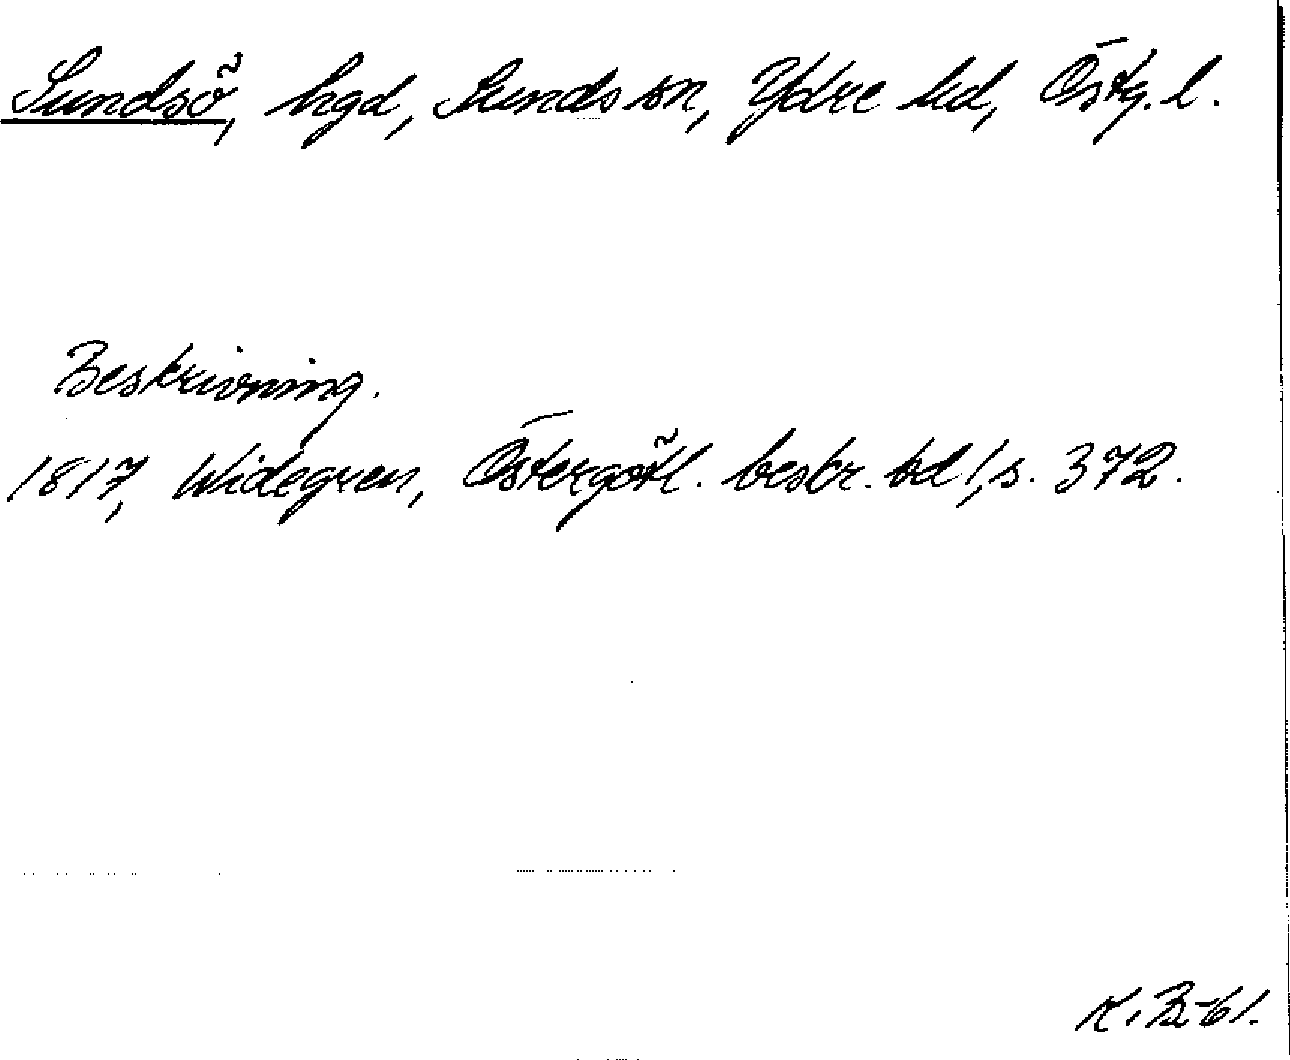 Sundsö, hgd, Sunds sn, Ydre hd, Östg. l.
Beskrivning.
1817, Widegren, Östergötl. beskr. bd 1, s. 372.
K. B. -61.